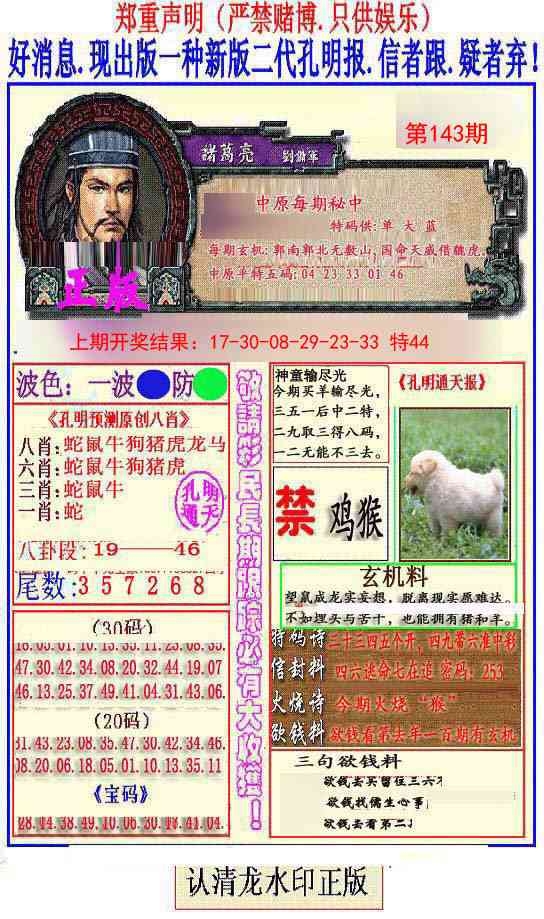 郑重声明（严禁赌博.只供娱乐）
好消息.现出版一种新版二代孔明报.信者跟.疑者弃！
第143期
諸葛亮 劉備軍
中原每期秘中
特码供:单 大 蓝
每期玄机:郭南郭北无數山,国命天威借魏虎.
中原平特五码:04 23 33 01 46
正版
上期开奖结果：17-30-08-29-23-33 特44
波色：一波 防
《孔明预测原创八肖》
八肖:蛇鼠牛狗猪虎龙马
六肖:蛇鼠牛狗猪虎
三肖:蛇鼠牛
一肖:蛇
孔明
通天
八卦段:19——46
尾数:357268
(30码)
18.03.01.10.13.35.11.23.08.33.
47.30.42.34.08.20.32.44.19.07
46.13.25.37.49.41.04.31.43.06.
(20码)
31.43.23.08.35.47.30.42.34.46.
08.20.06.18.05.01.10.13.35.11
《宝码》
28.14.38.49.10.06.30.17.41.04.
敬請彩民長期跟踪必有大收獲！
神童输尽光
今期买羊输尽光，
三五一后中二特，
二九取三得八码，
一二无能不三去。
《孔明通天报》
禁 鸡猴
玄机料
望鼠成龙实妄想，脱离现实愿难达。
不如埋头与苦干，也能拥有猪和羊。
特码诗 三十三四五个开，四九蓄六准中彩
信封料 四六逃命七在追 密码：253
火烧诗 今期火烧“猴”
欲钱料 欲钱看第去年一百期有玄机
三句欲钱料
欲钱去买留住三六不
欲钱找儒生心事
欲钱去看第二
认清龙水印正版